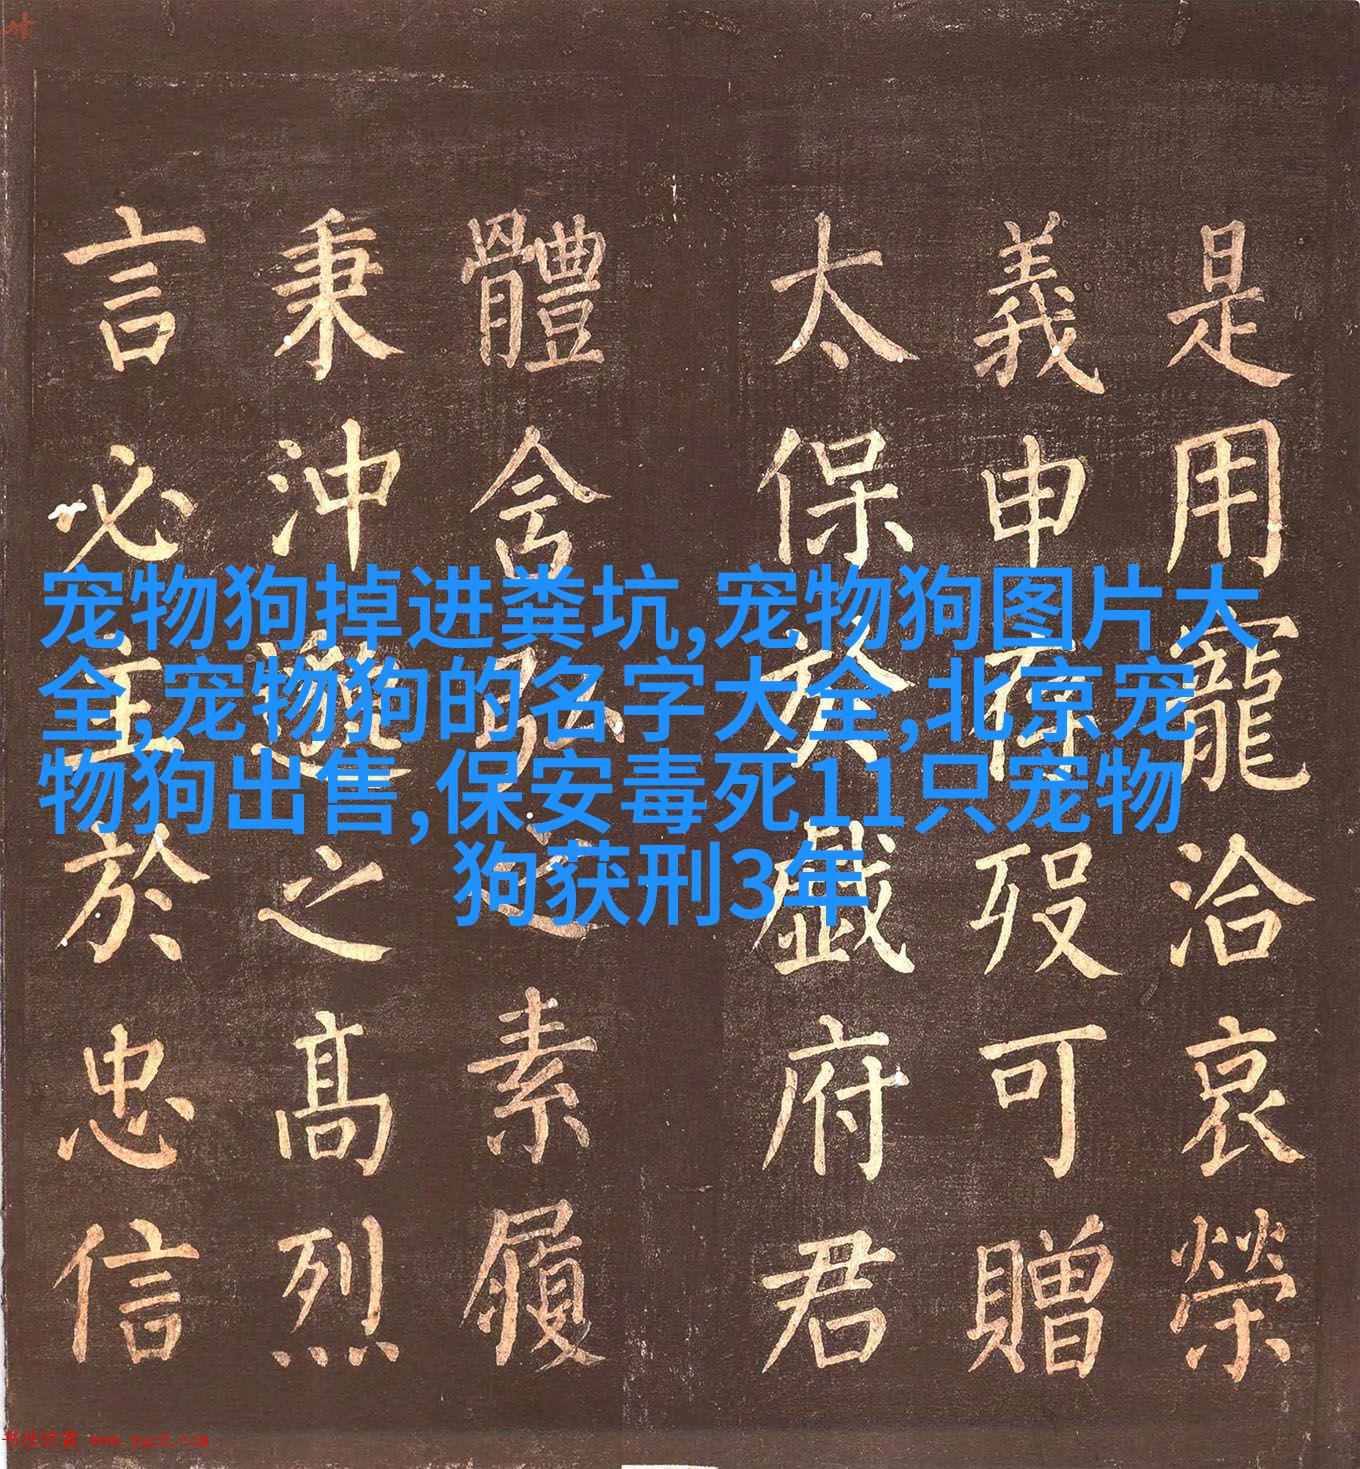 是用寵洽哀榮
義申存歿可贈
太保於戲府君
體含弘之素履
秉沖邈之髙烈
言必主於忠信
宠物狗掉进粪坑,宠物狗图片大
全,宠物狗的名字大全,北京宠
物狗出售,保安毒死11只宠物
狗获刑3年
书法欣赏 www.yac8.com